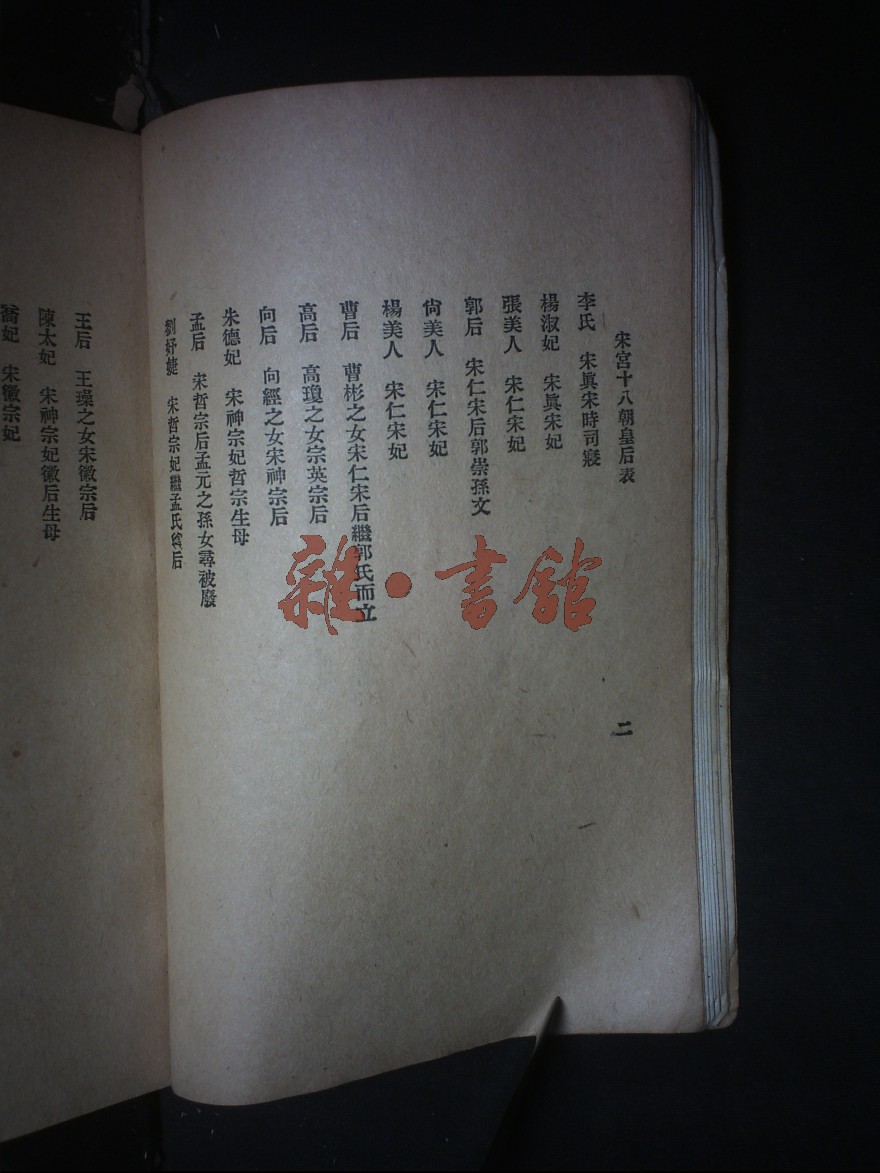 宋宮十八朝皇后表
李氏　宋眞宋時司寢
楊淑妃　宋眞宋妃
張美人　宋仁宋妃
郭后　宋仁宋后郭崇孫文
尙美人　宋仁宋妃
楊美人　宋仁宋妃
曹后　曹彬之女宋仁宋后繼郭氏而立
高后　高瓊之女宗英宗后
向后　向經之女宋神宗后
朱德妃　宋神宗妃哲宗生母
孟后　宋哲宗后孟元之孫女尋被廢
劉妤婕　宋哲宗妃繼孟氏爲后
二
王后　王璪之女宋徽宗后
陳太妃　宋神宗妃徽后生母
喬妃　宋徽宗妃
雜·書館